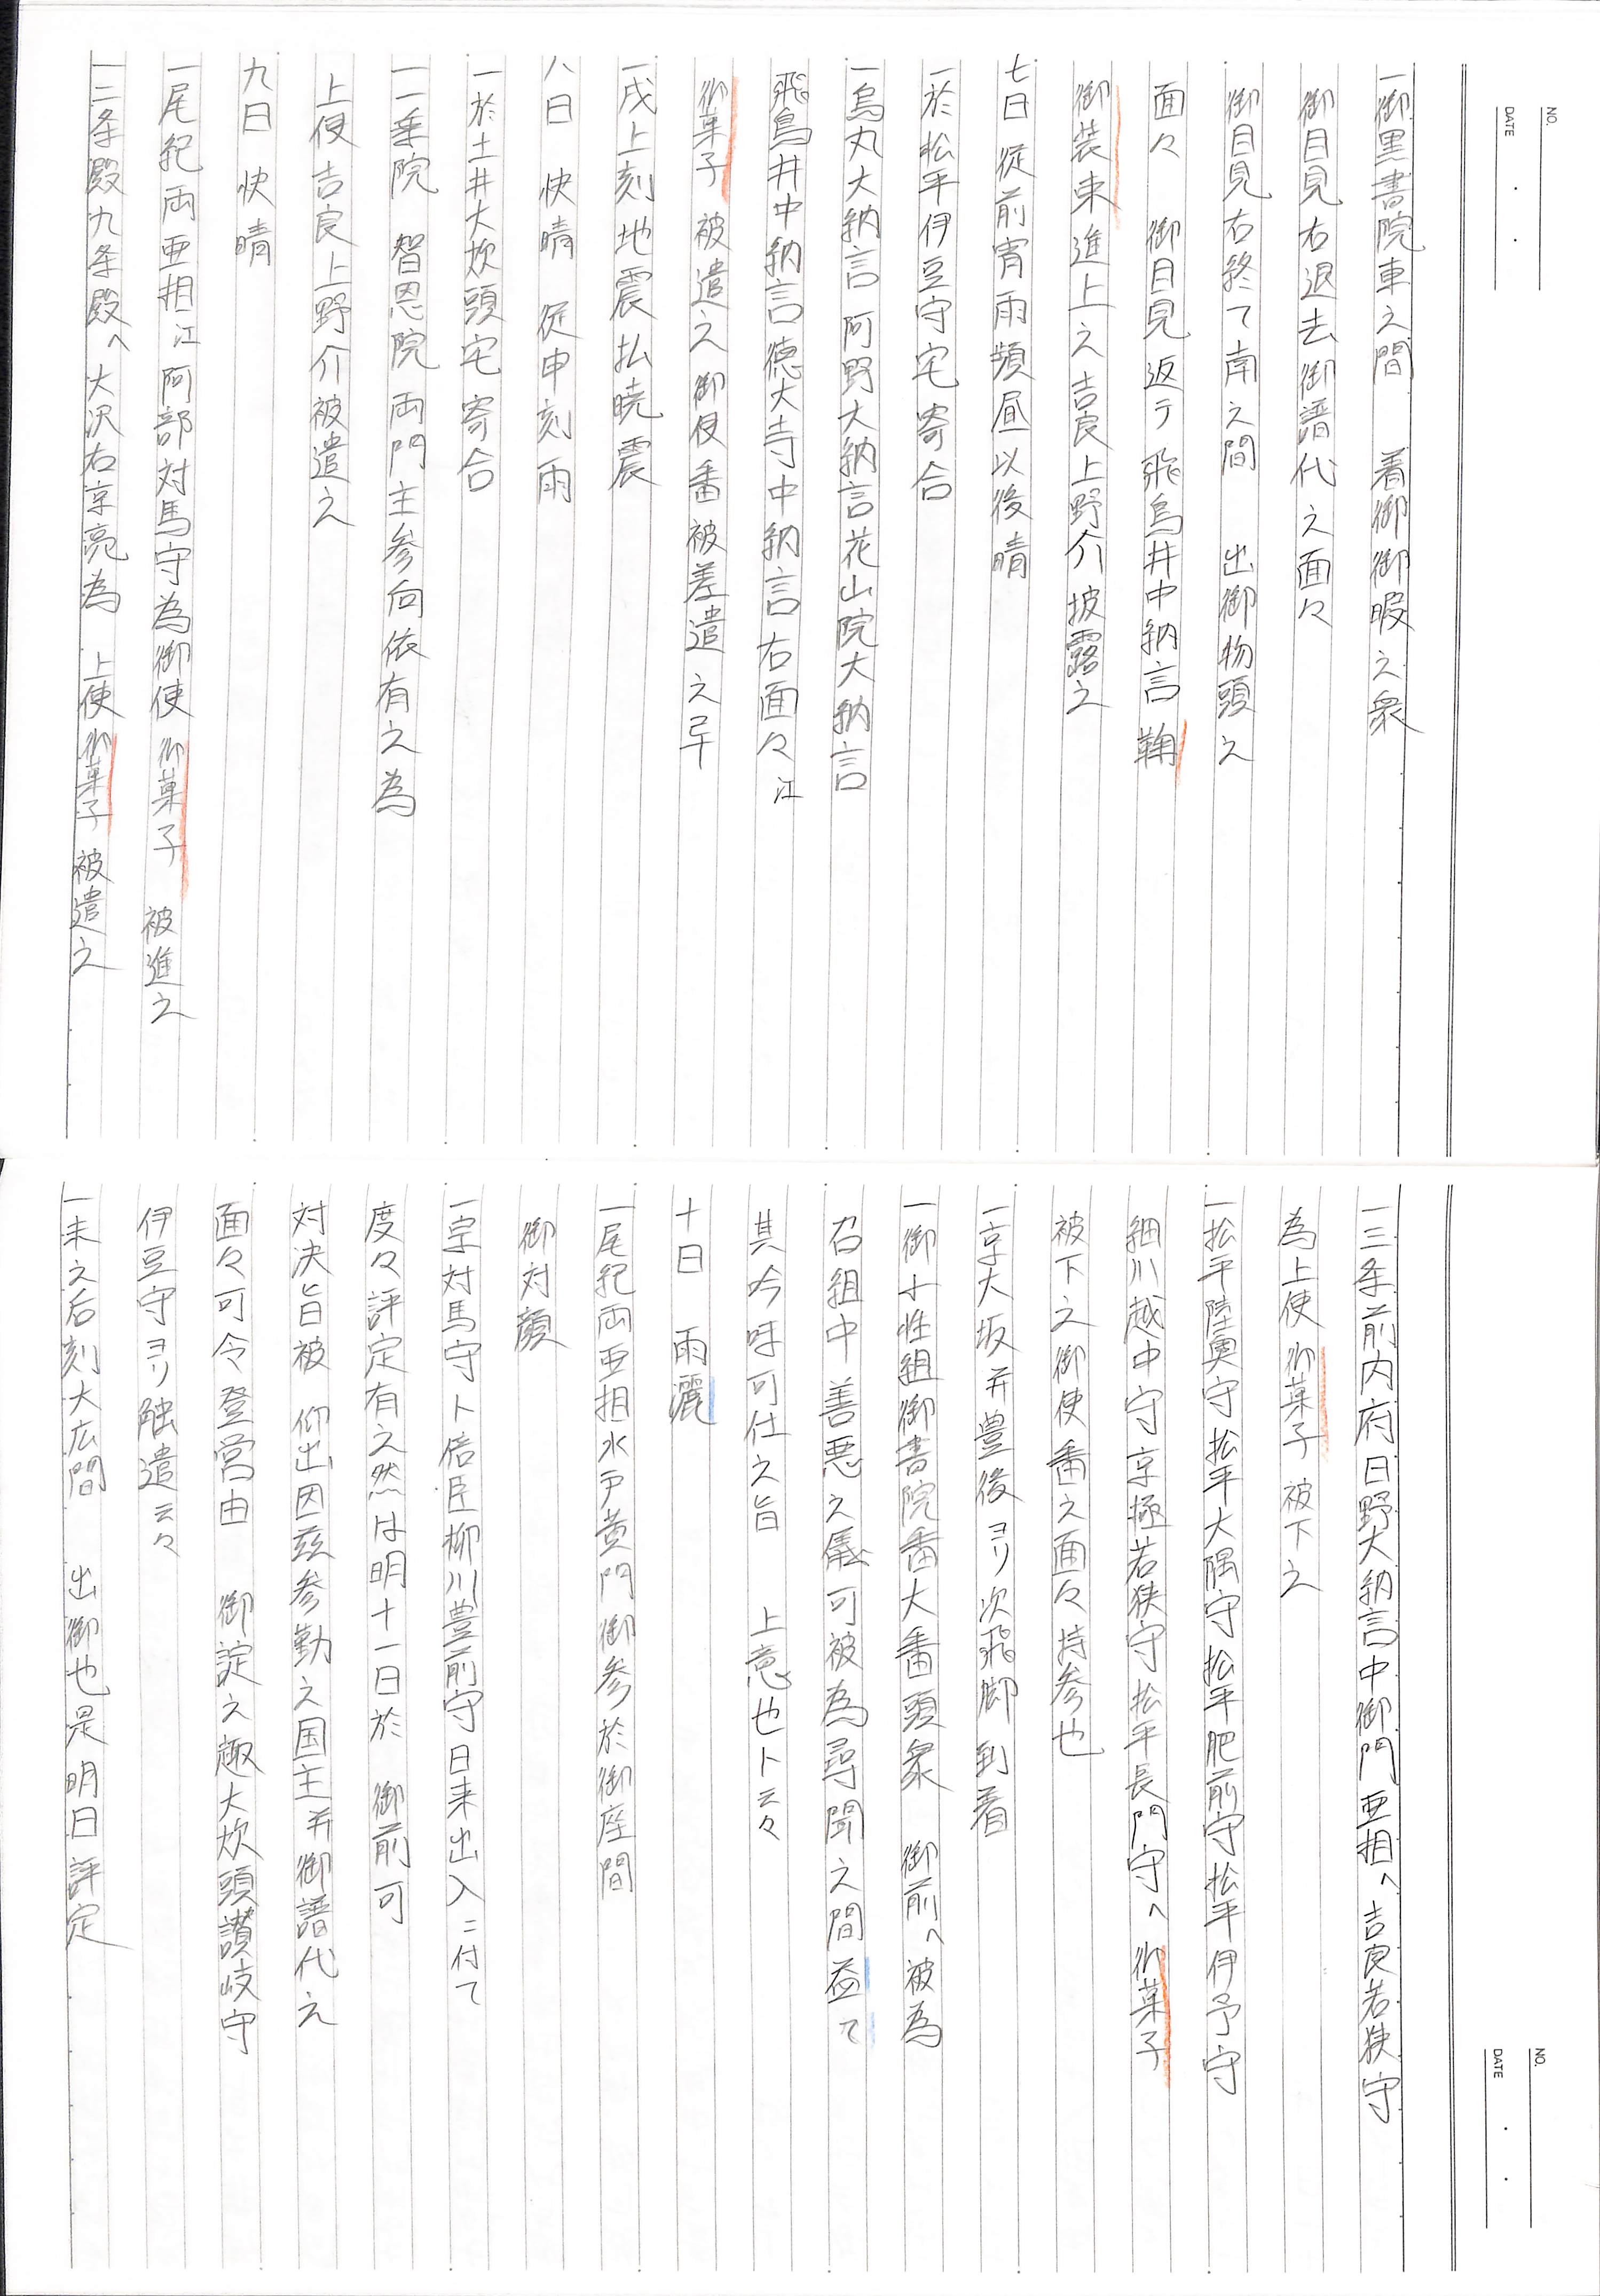 NO.
DATE
一御黒書院車之間 着御御暇之衆
御目見右退去御譜代之面々
御目見右終て南之間 出御物頭之
面々 御目見返テ飛鳥井中納言鞠
御装束進上之吉良上野介披露之
七日 従前宵雨頻昼以後晴
一於松平伊豆守宅寄合
一烏丸大納言阿野大納言花山院大納言
飛鳥井中納言徳大寺中納言右面々江
御菓子被遣之御使番被差遣之
一戌上刻地震払暁震
八日 快晴 従申刻雨
一於土井大炊頭宅寄合
一一乗院 智恩院両門主参向依有之為
上使吉良上野介被遣之
九日 快晴
一尾紀両亜相江阿部対馬守為御使御菓子 被進之
一二条殿九条殿へ大沢右京亮為 上使御菓子被遣之
NO.
DATE
一三条前内府日野大納言中御門亜相へ吉良若狭守
為上使御菓子被下之
一松平陸奥守松平大隅守松平肥前守松平伊予守
細川越中守京極若狭守松平長門守へ御菓子
被下之御使番之面々持参也
一京大坂并豊後ヨリ次飛脚到着
一御小性組御書院番大番頭衆 御前へ被為
召組中善悪之儀可被為尋聞之間益て
其吟味可仕之旨 上意也ト云々
十日 雨灑
一尾紀両亜相水戸黄門御参於御座間
御対顔
一宗対馬守ト倍臣柳川豊前守日来出入ニ付て
度々評定有之然は明十一日於 御前可
対决旨被 仰出因茲参勤之国主并御譜代之
面々可令登営由 御諚之趣大炊頭讃岐守
伊豆守ヨリ触遣云々
一未之后刻大広間 出御也是明日評定